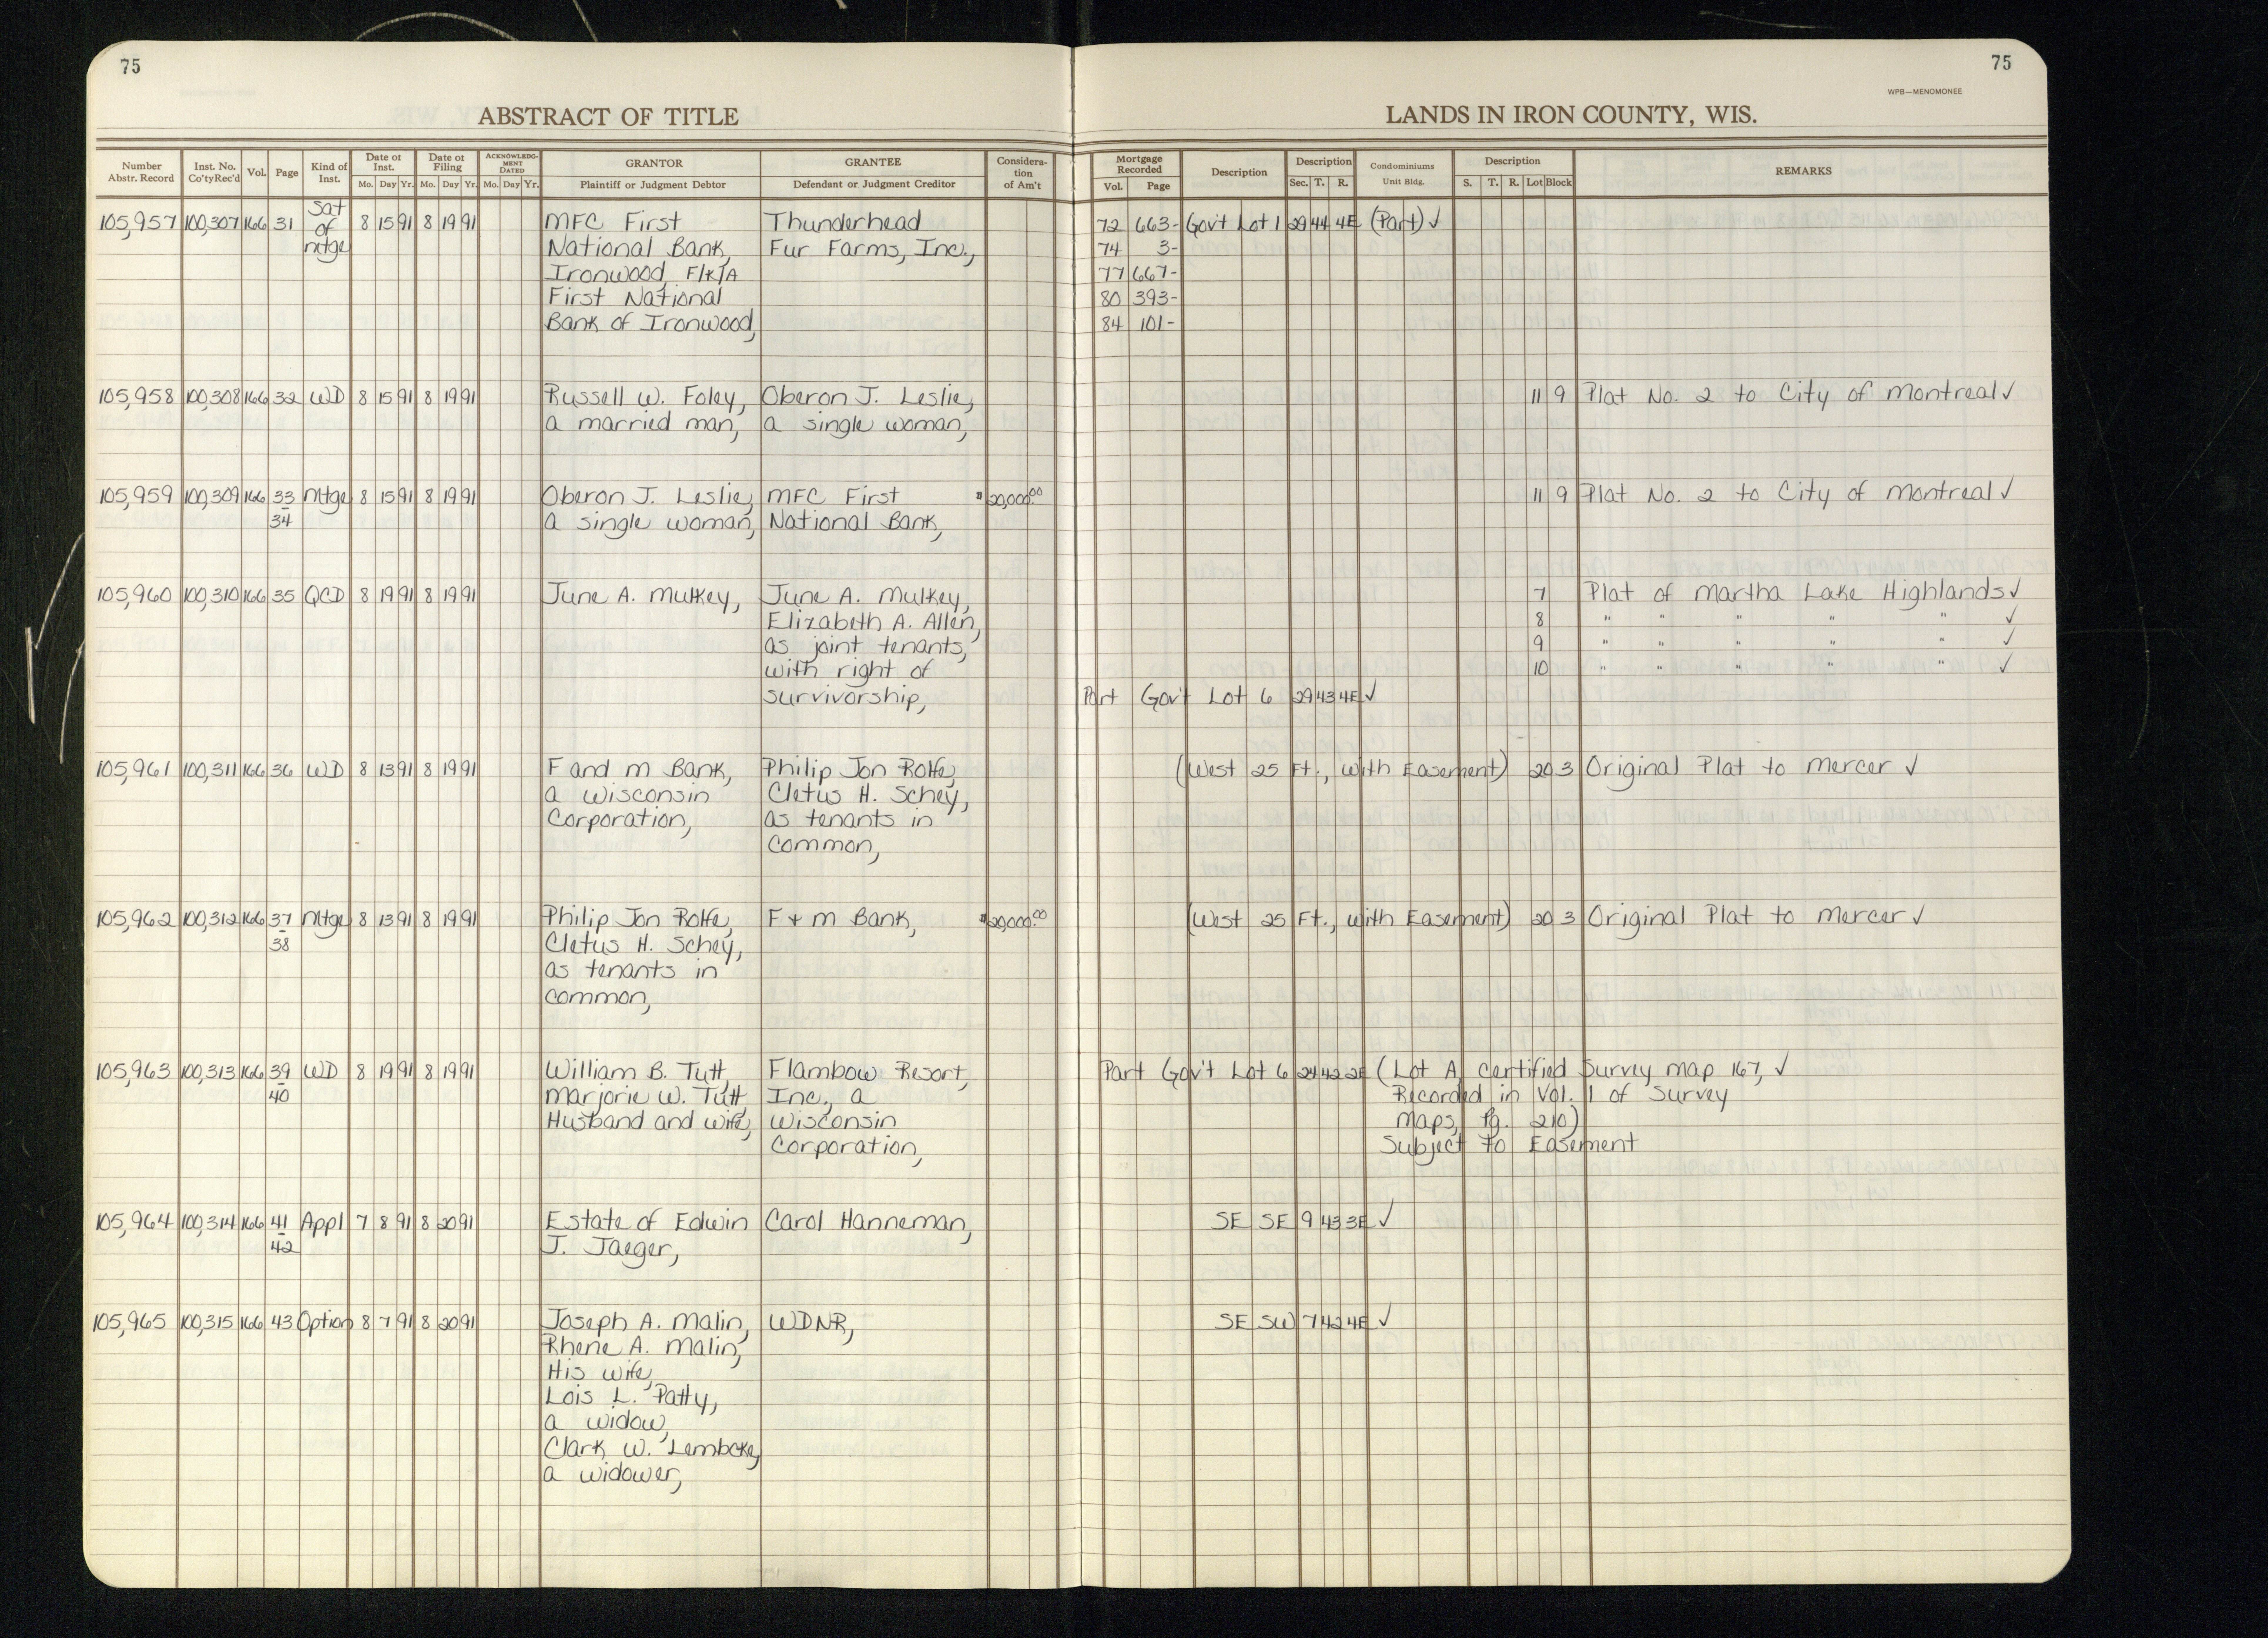 75
75
WPB—MENOMONEE
ABSTRACT OF TITLE
LANDS IN IRON COUNTY, WIS.
Number Abstr. Record Inst. No. Co'ty Rec'd Vol. Page Kind of Inst. Date of Inst. Mo. Day Yr. Date of Filing Mo. Day Yr. ACKNOWLEDGMENT DATED Mo. Day Yr. GRANTOR Plaintiff or Judgment Debtor GRANTEE Defendant or Judgment Creditor Consideration of Am't Mortgage Recorded Vol. Page Description Description Sec. T. R. Condominiums Unit Bldg. Description S. T. R. Lot Block REMARKS
105,957 100,307 166 31 Sat of mtge 8 15 91 8 19 91 MFC First Thunderhead 72 663- Gov't Lot 1 29 44 4E (Part) ✓
National Bank, Fur Farms, Inc., 74 3-
Ironwood, F/K/A 77 667-
First National 80 393-
Bank of Ironwood, 84 101-
105,958 100,308 166 32 WD 8 15 91 8 19 91 Russell W. Foley, Oberon J. Leslie, 11 9 Plat No. 2 to City of Montreal ✓
a married man, a single woman,
105,959 100,309 166 33 Mtge 8 15 91 8 19 91 Oberon J. Leslie, MFC First $20,000.00 11 9 Plat No. 2 to City of Montreal ✓
- 34 a single woman, National Bank,
105,960 100,310 166 35 QCD 8 19 91 8 19 91 June A. Mulkey, June A. Mulkey, 7 Plat of Martha Lake Highlands ✓
Elizabeth A. Allen, 8 " " " " " ✓
as joint tenants, 9 " " " " " ✓
with right of 10 " " " " " ✓
survivorship, Part Gov't Lot 6 29 43 4E ✓
105,961 100,311 166 36 WD 8 13 91 8 19 91 F and M Bank, Philip Jon Rolfe, (West 25 Ft., with Easement) 20 3 Original Plat to Mercer ✓
a Wisconsin Cletus H. Schey,
Corporation, as tenants in
common,
105,962 100,312 166 37 Mtge 8 13 91 8 19 91 Philip Jon Rolfe, F + M Bank, $20,000.00 (West 25 Ft., with Easement) 20 3 Original Plat to Mercer ✓
- 38 Cletus H. Schey,
as tenants in
common,
105,963 100,313 166 39 WD 8 19 91 8 19 91 William B. Tutt, Flambow Resort, Part Gov't Lot 6 24 42 2E (Lot A, certified Survey map 167, ✓
- 40 Marjorie W. Tutt, Inc., a Recorded in Vol. 1 of Survey
Husband and wife, Wisconsin Maps, Pg. 210)
Corporation, Subject to Easement
105,964 100,314 166 41 Appl 7 8 91 8 20 91 Estate of Edwin Carol Hanneman, SE SE 9 43 3E ✓
- 42 J. Jaeger,
105,965 100,315 166 43 Option 8 7 91 8 20 91 Joseph A. Malin, WDNR, SE SW 7 42 4E ✓
Rhene A. Malin,
His wife,
Lois L. Patty,
a widow,
Clark W. Lembcke,
a widower,